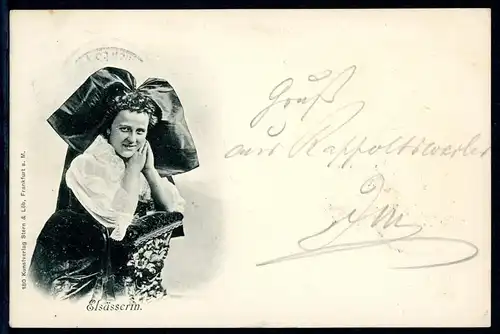 Gruß
aus Rappoltsweiler
Elsässerin.
160 Kunstverlag Stern & Lib, Frankfurt a. M.